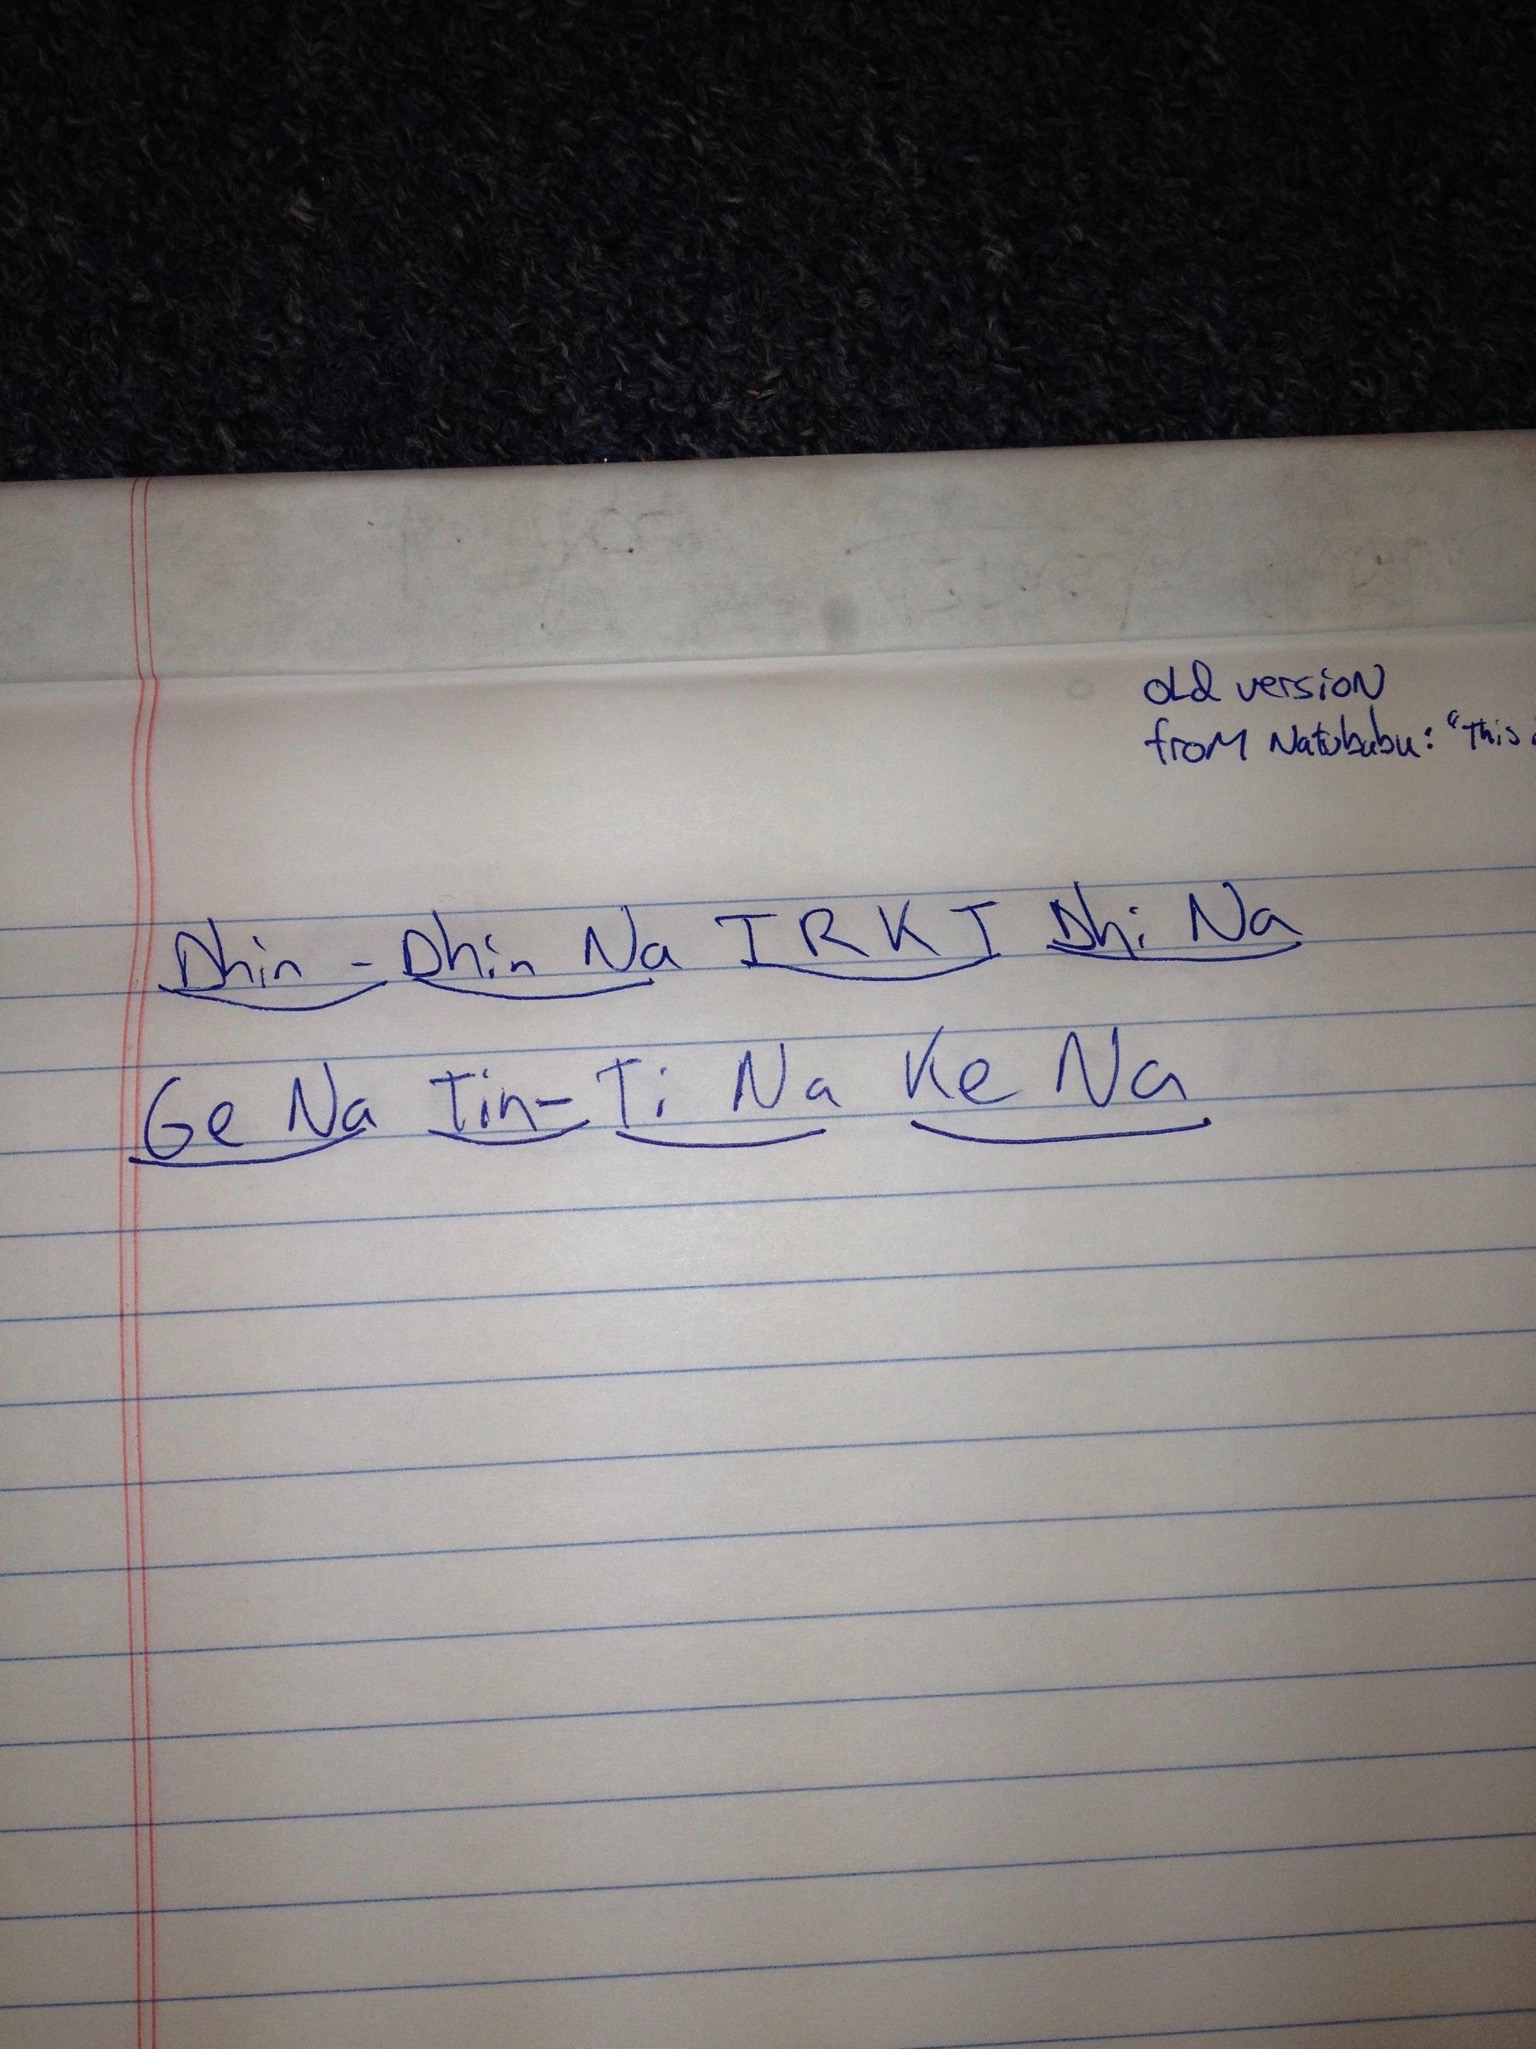 old version
from Natubabu: "This
Dhin - Dhin Na TRKT Dhi Na
Ge Na Tin - Ti Na Ke Na